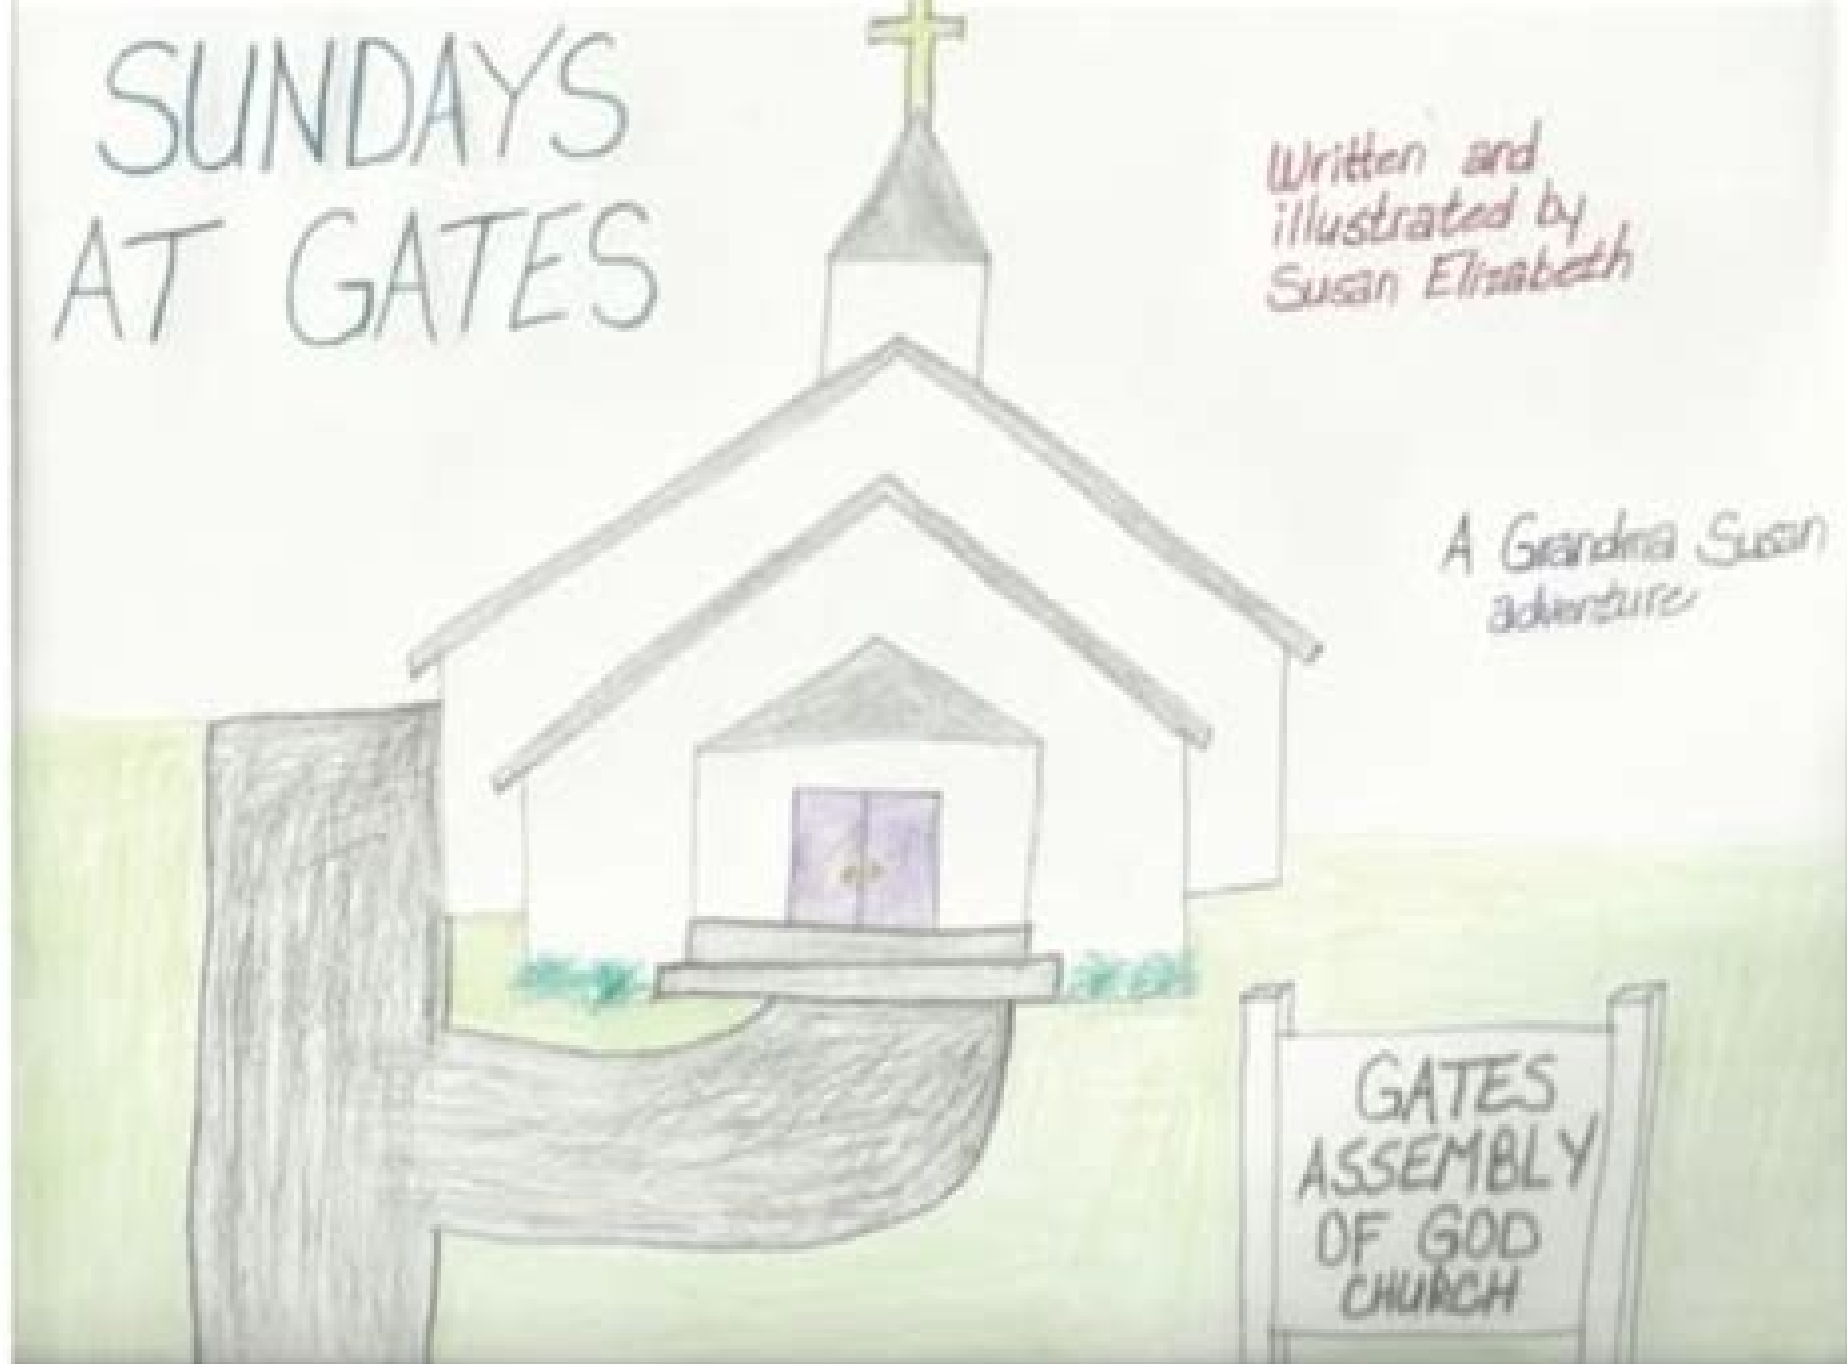 SUNDAYS
AT GATES
Written and
illustrated by
Susan Elizabeth
A Grandma Susan
adventure
GATES
ASSEMBLY
OF GOD
CHURCH